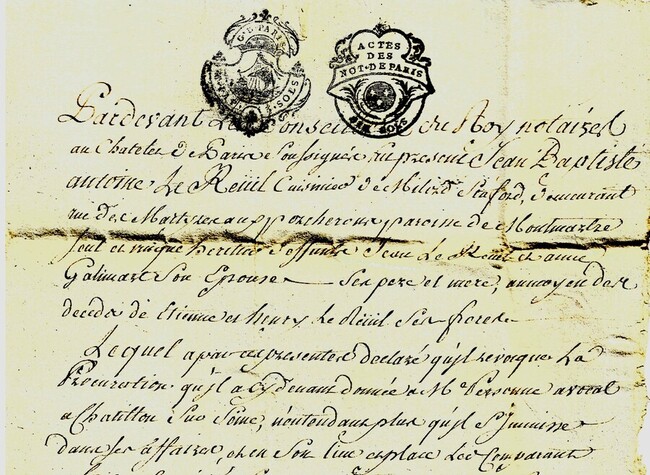 G. L. PARIS
ACTES
DES
NOT. DE PARIS
SIX SOLS
Pardevant Les Conseillers du Roy notaires
au Chatelet de Paris soussignés fut present Jean Baptiste
antoine Le Reüil Cuisinier de Milord Stafford, demeurant
rue des Martirs aux porcherons paroisse de Montmartre
seul et unique heritier de deffunts Jean Le Reüil et anne
Galimard Son Epouse ses pere et mere, au moyen des
decéds de Etienne et henry Le Reüil Ses freres
Lequel a par ces presentes declaré qu'il revoque La
Procuration qu'il a cy devant donnée a Me Personne avocat
a Chatillon Sur Seine, n'entendant plus qu'il S'immisse
dans ses affaires, et en Son lieu et place Led. Comparant